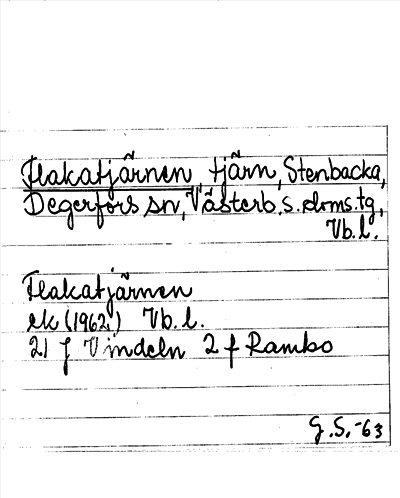 Flakatjärnen, tjärn, Stenbacka,
Degerfors sn, Västerb. s. doms.tg,
Vb.l.
Flakatjärnen
ek (1962) Vb.l.
21 f Vindeln 2 f Rambo
G.S.-63